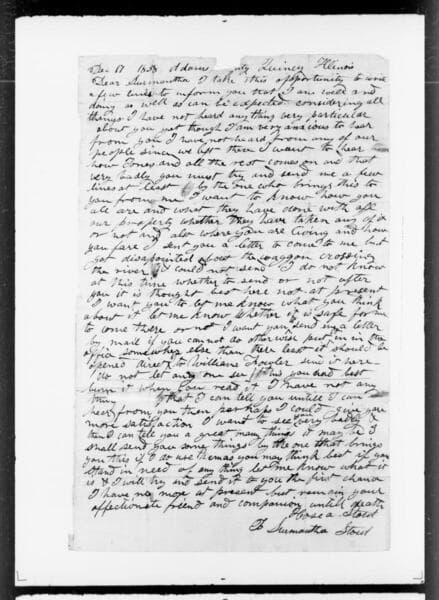 Dec 17 1838 Adams nty Quincy Illinois
Dear Surmantha I take this opportunity to write
a few lines to inform you that I am well and
doing as well as can be expected considering all
things I have not heard any thing very particular
about you yet though I am very anxious to hear
from you I have not heard from any of our
people since we left there I want to hear
how Jones and all the rest comes on and that
very badly you must try and send me a few
lines at least by the one who brings this to
you from me I want to know how you
all are and what they have done with all
our property whether they have taken any of it
or not and also where you are living and how
you fare I sent you a letter to come to me but
got disapointed about the waggon crossing
the river I could not send I do not know
at this time whether to send or not after
you it is thought best here not at present
I want you to let me know what you think
about it let me know whether it is safe for me
to come there or not I want you send me a letter
by mail if you cannot do otherwise put it in the
office somewhere else than there least it should be
opened direct to William Fowler send it here
do not let any one see this you had best
burn it when you read it I have not any
thing that I can tell you untill I can
hear from you then perhaps I could give you
more satisfaction I want to see you very badly
then I can tell you a great many things it may be I
shall send you some things by the one that brings
you this if I do use them as you may think best if you
stand in need of any thing let me know what it
is & I will try and send it to you the first chance
I have no more at present but remain your
affectionate friend and companion untill death
Hosea Stout
To Surmantha Stout